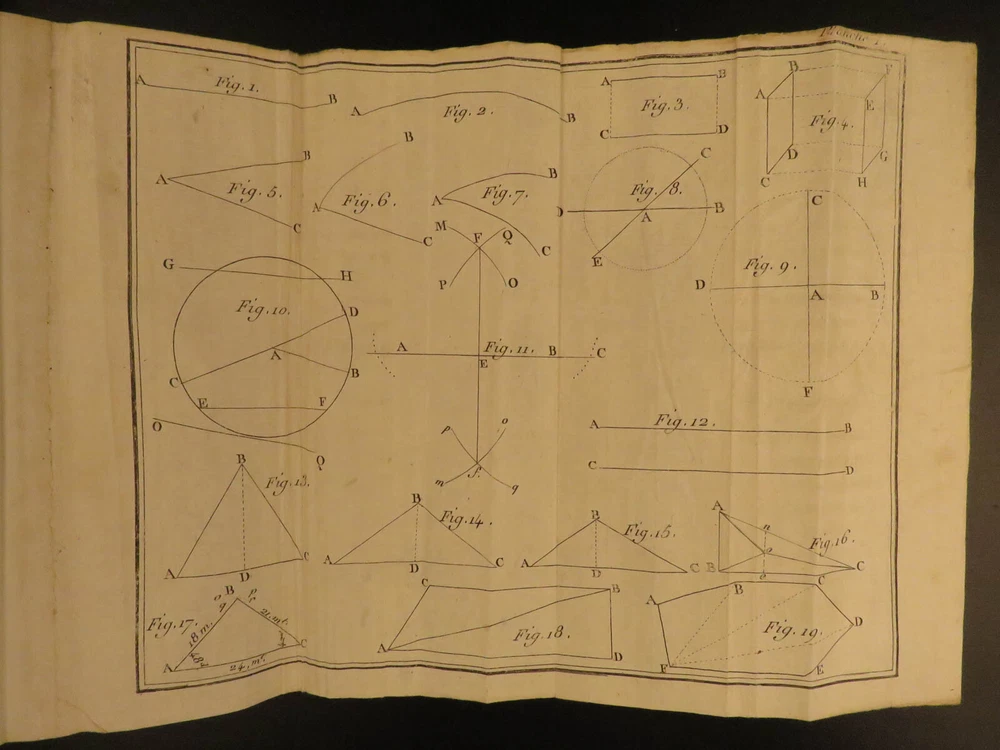 Planche 1.
A Fig. 1. B
A Fig. 2. B
A B
Fig. 3.
C D
B F
A E
Fig. 4.
D G
C H
A B
Fig. 5.
C
B
A Fig. 6.
C
A Fig. 7. B
C
C
Fig. 8.
D A B
E
C
Fig. 9.
D A B
F
G H
Fig. 10.
D
A
C B
E F
O Q
M F Q
P O
A Fig. 11. B C
E
p o
m f. q
A Fig. 12. B
C D
B
Fig. 13.
A D C
B
Fig. 14.
A D C
B
Fig. 15.
A D C
A
n
o
Fig. 16.
B e C
Fig. 17.
B
o q
18 m.
21 mt.
A 24 mt. C
C B
Fig. 18.
A D
A B C
Fig. 19.
D
F E